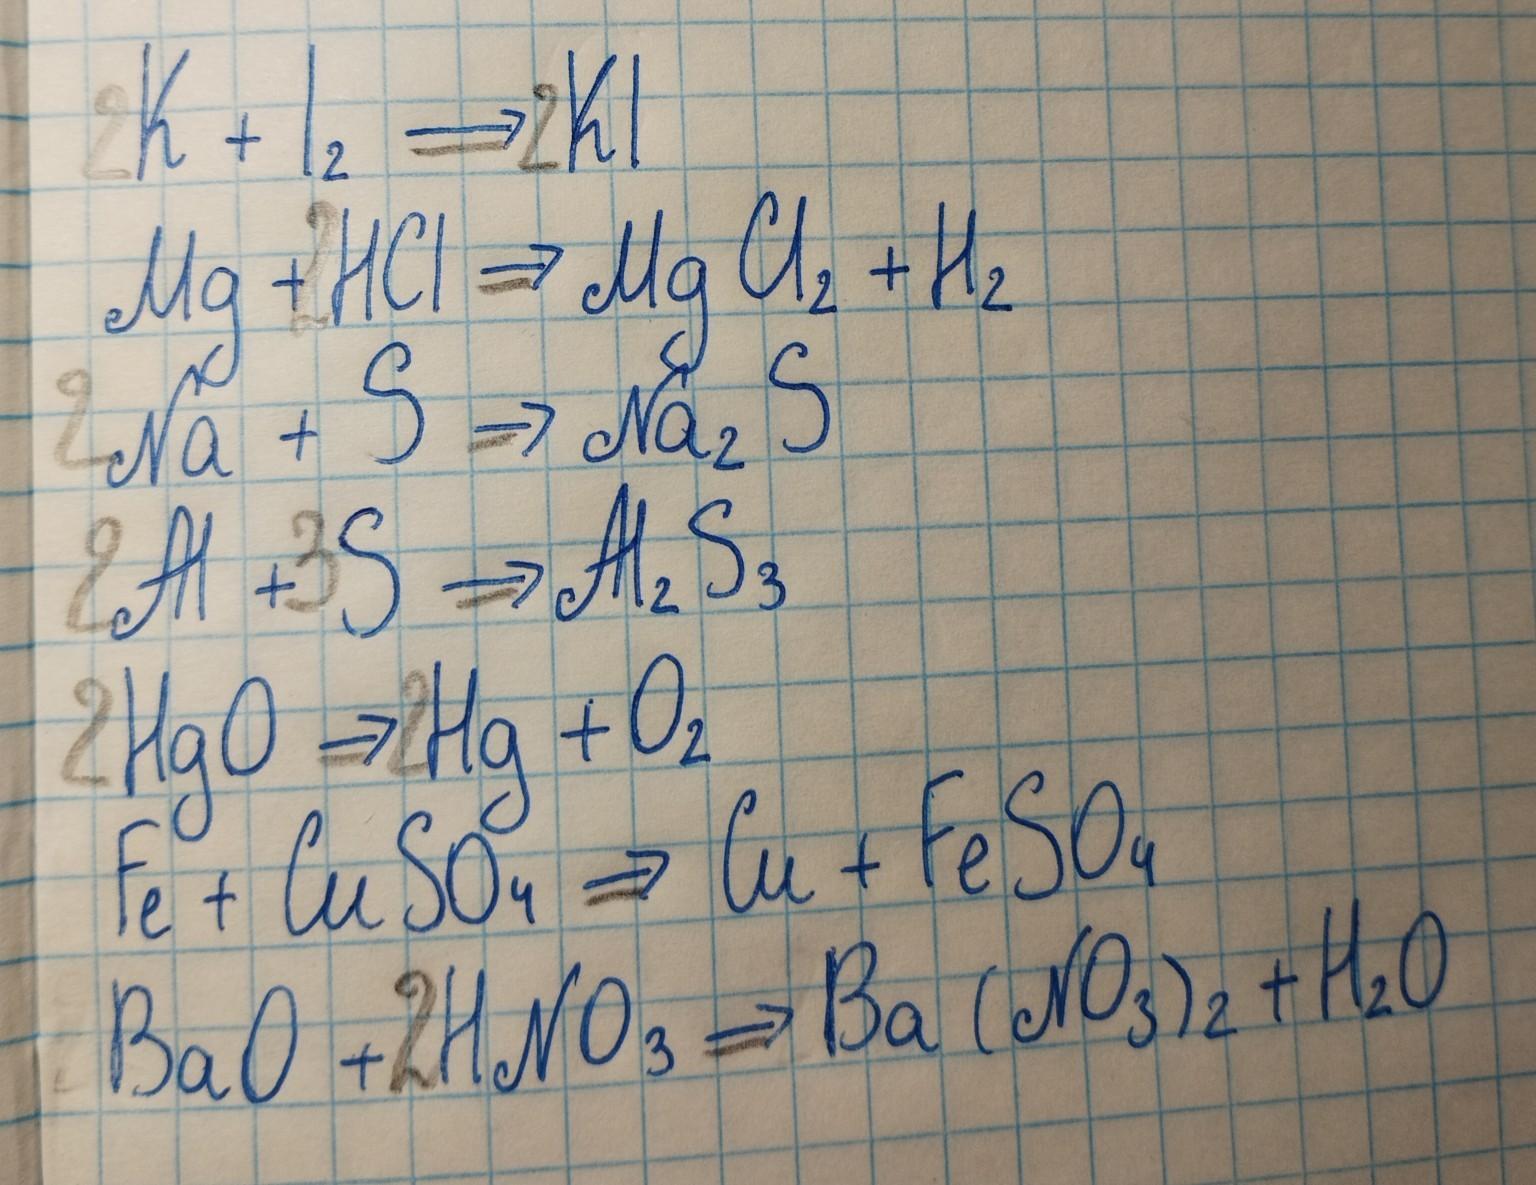 2K + I₂ ⇒ 2KI
Mg + 2HCl ⇒ MgCl₂ + H₂
2Na + S ⇒ Na₂S
2Al + 3S ⇒ Al₂S₃
2HgO ⇒ 2Hg + O₂
Fe + CuSO₄ ⇒ Cu + FeSO₄
BaO + 2HNO₃ ⇒ Ba(NO₃)₂ + H₂O